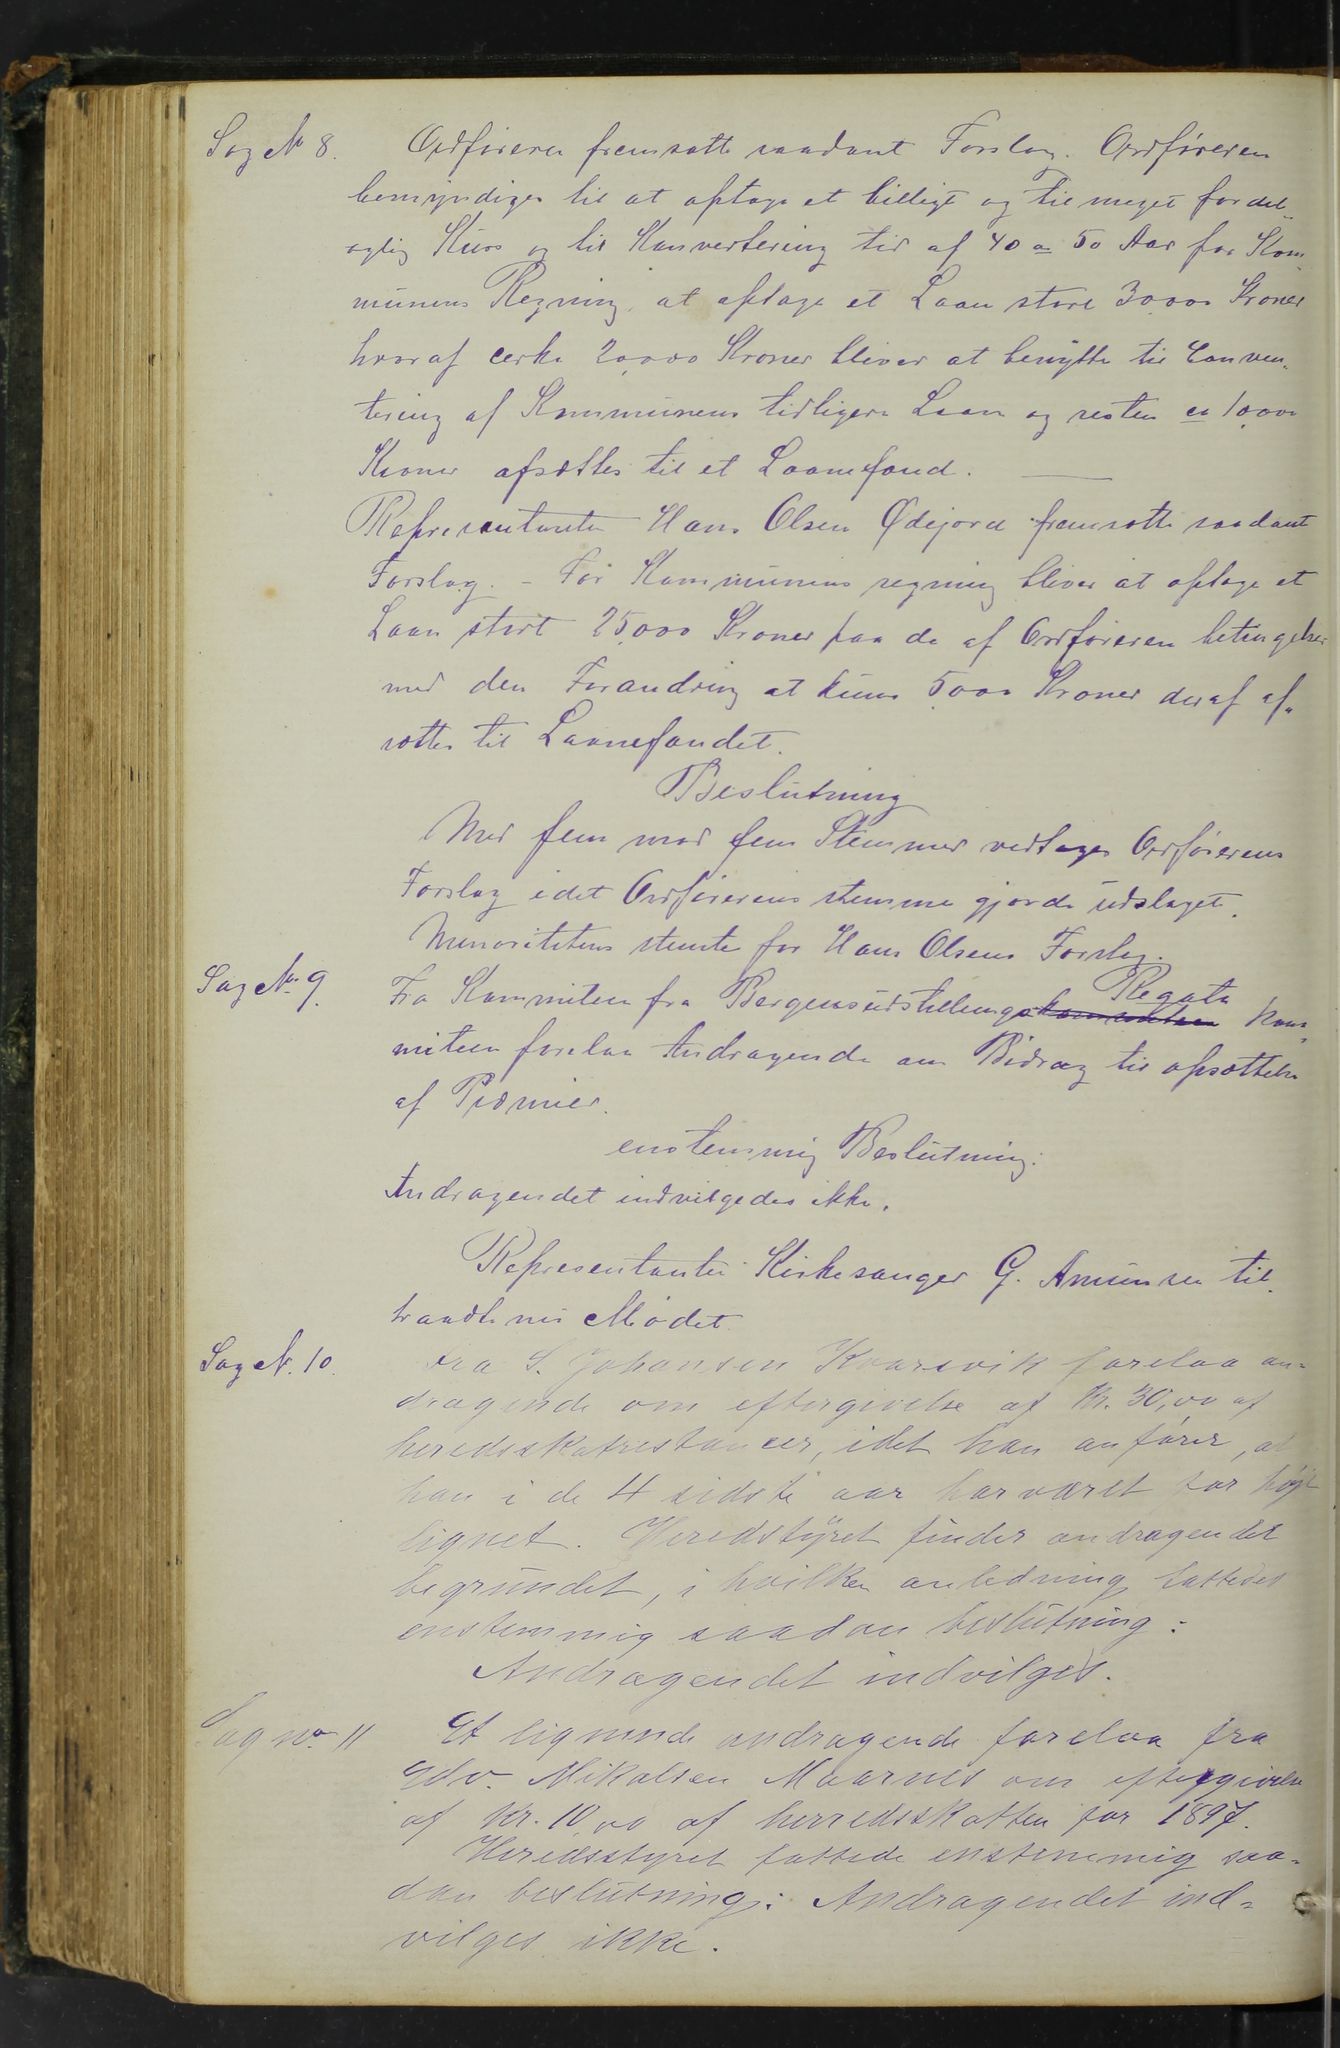 Sag No 8. Ordføreren fremsatte saadant Forslag. Ordføreren
bemyndiges til at optage et billigt og til meget fordel-
agtig Kurs og til Konvertering tid af 40 a 50 Aar for Kom-
munens Regning, at optage et Laan stort 30,000 Kroner
hvoraf cerka 20,000 Kroner bliver at benytte til Conver-
tering af Kommunens tidligere Laan og resten ca 10,000
Kroner afsættes til et Laanefond.
Representanten Hans Olsen Ødejord fremsatte saadant
Forslag. - For Kommunens regning bliver at optage et
Laan stort 25,000 Kroner paa de af Ordføreren betingelser
med den Forandring at kuns 5000 Kroner deraf af-
sættes til Laanefondet.
Beslutning
Med fem mod fem Stemmer vedtages Ordførerens
Forslag idet Ordførerens stemme gjorde udslaget.
Minoriteten stemte for Hans Olsens Forslag.
Sag No 9. Fra Kommiteen fra Bergensudstillings Regata Kom-
miteen forelaa Andragende om Bidrag til opsættelse
af Præmier.
enstemmig Beslutning:
Andragendet indvilgedes ikke.
Representanten Kirkesanger G. Amunsen til-
traadte nu Mødet
Sag N. 10. Fra S. Johansen Kvarsvik forelaa an-
dragende om eftergivelse af Kr. 30,00 af
heredsskatrestancer, idet han anfører, at
han i de 4 sidste aar har været for høit
lignet. Heredstyret finder andragendet
begrundet, i hvilken anledning fattedes
enstemmig saadan beslutning:
Andragendet indvilges.
Sag no 11 Et lignende andragende forelaa fra
Edv. Mikalsen Maarnes om eftergivelse
af Kr. 10,00 af herredsskatten for 1897.
Heredsstyret fattede enstemmig saa-
dan beslutning: Andragendet ind-
vilges ikke.